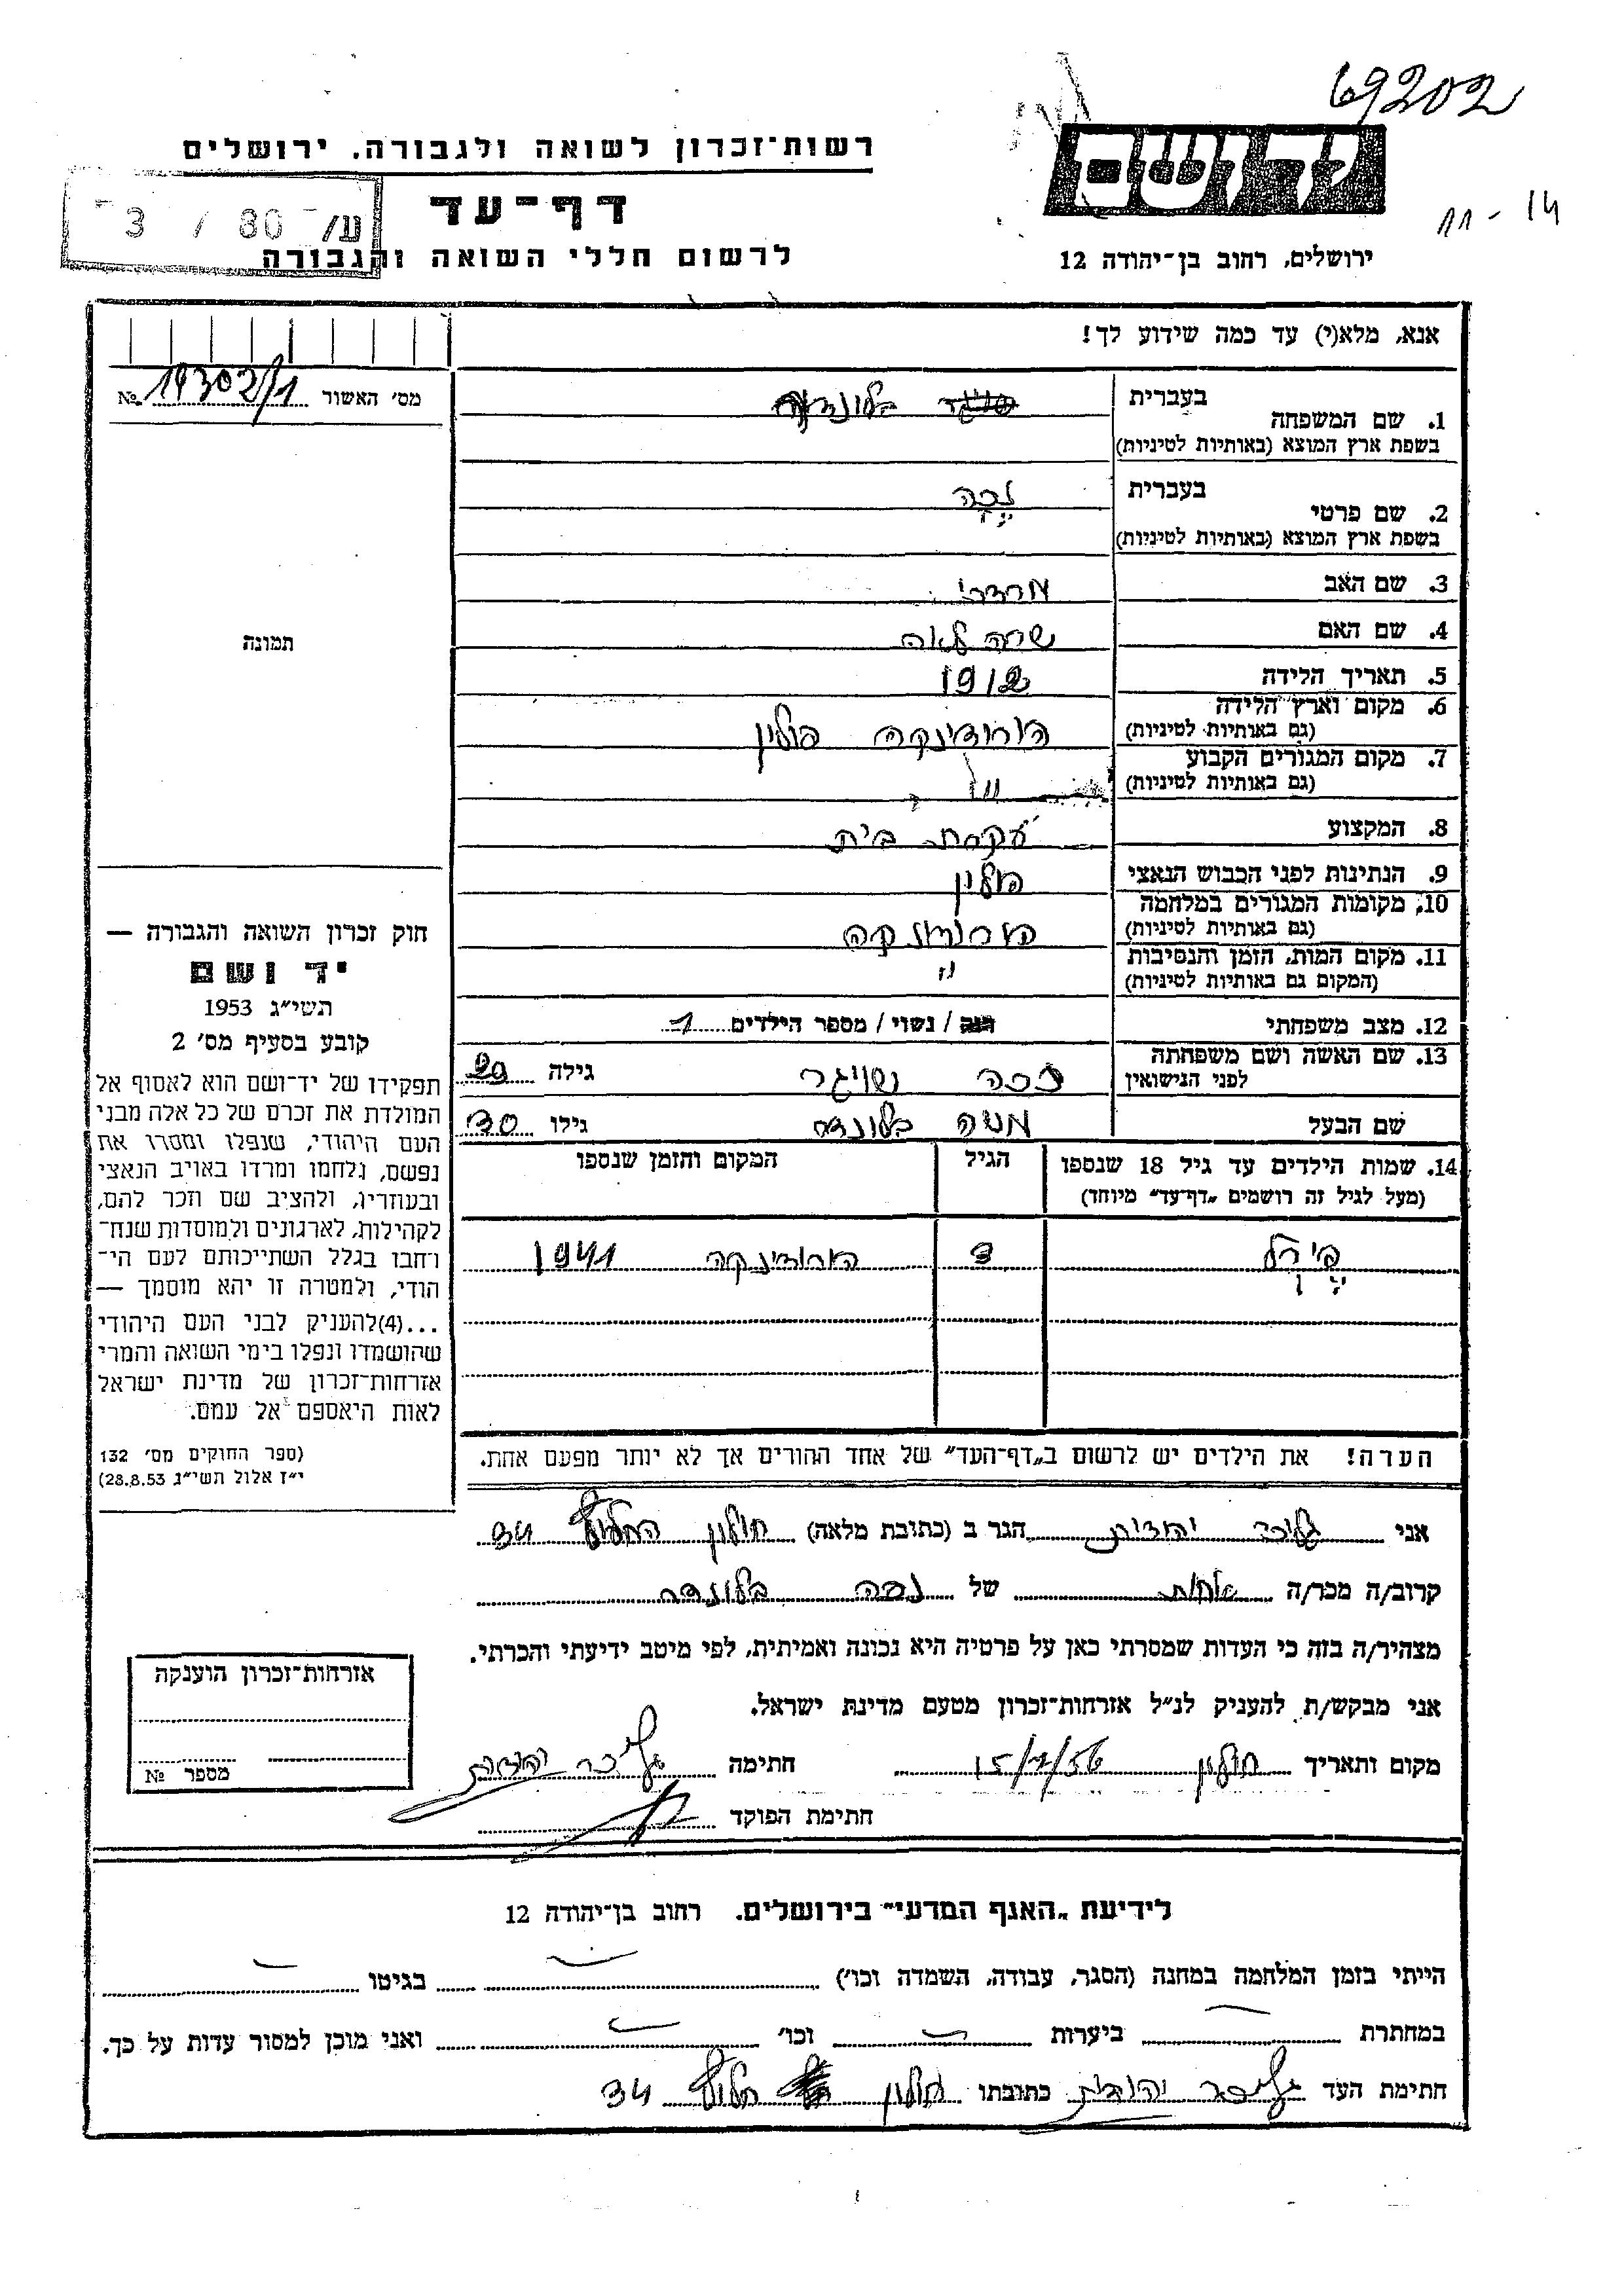 69202
רשות־זכרון לשואה ולגבורה. ירושלים
ידושם
דף־עד
ע/ 80 / 3
11-14
לרשום חללי השואה והגבורה
ירושלים, רחוב בן־יהודה 12
אנא, מלא(י) עד כמה שידוע לך!
מס׳ האשור № 19302/1
1. שם המשפחה
בעברית בלונדר
בשפת ארץ המוצא (באותיות לטיניות)
2. שם פרטי
בעברית
בשפת ארץ המוצא (באותיות לטיניות)
3. שם האב מרדכי
4. שם האם שרה לאה
5. תאריך הלידה 1912
6. מקום וארץ הלידה
(גם באותיות לטיניות) הורודינקה פולין
7. מקום המגורים הקבוע
(גם באותיות לטיניות)
8. המקצוע עקרת בית
9. הנתינות לפני הכבוש הנאצי פולין
10. מקומות המגורים במלחמה
(גם באותיות לטיניות) הורודנקה
11. מקום המות, הזמן והנסיבות
(המקום גם באותיות לטיניות) "
12. מצב משפחתי רוק / נשוי / מספר הילדים 1
13. שם האשה ושם משפחתה
לפני הנישואין גילה 29
שם הבעל משה בלונדר גילו 30
14. שמות הילדים עד גיל 18 שנספו
(מעל לגיל זה רושמים „דף־עד" מיוחד)
הגיל
המקום והזמן שנספו
פירל 3 הורודינקה 1941
הערה! את הילדים יש לרשום ב„דף־העד" של אחד ההורים אך לא יותר מפעם אחת.
תמונה
חוק זכרון השואה והגבורה —
יד ושם
תשי״ג 1953
קובע בסעיף מס׳ 2
תפקידו של יד־ושם הוא לאסוף אל
המולדת את זכרם של כל אלה מבני
העם היהודי, שנפלו ומסרו את
נפשם, נלחמו ומרדו באויב הנאצי
ובעוזריו, ולהציב שם וזכר להם,
לקהילות, לארגונים ולמוסדות שנח־
רחבו בגלל השתייכותם לעם הי־
הודי, ולמטרה זו יהא מוסמך —
...(4)להעניק לבני העם היהודי
שהושמדו ונפלו בימי השואה והמרי
אזרחות־זכרון של מדינת ישראל
לאות היאספם אל עמם.
(ספר החוקים מס׳ 132
י״ז אלול תשי״ג 28.8.53)
אני יהודית הגר ב (כתובת מלאה) חולון החלוץ 34
קרוב/ה מכר/ה אחות של בלונדר
מצהיר/ה בזה כי העדות שמסרתי כאן על פרטיה היא נכונה ואמיתית, לפי מיטב ידיעתי והכרתי.
אני מבקש/ת להעניק לנ״ל אזרחות־זכרון מטעם מדינת ישראל.
מקום ותאריך חולון 15/7/56 חתימה יהודית
חתימת הפוקד
אזרחות־זכרון הוענקה
מספר №
לידיעת „האגף המדעי" בירושלים. רחוב בן־יהודה 12
הייתי בזמן המלחמה במחנה (הסגר, עבודה, השמדה וכו׳) בגיטו
במחתרת ביערות וכו׳ ואני מוכן למסור עדות על כך.
חתימת העד יהודית כתובתו חולון חלוץ 34